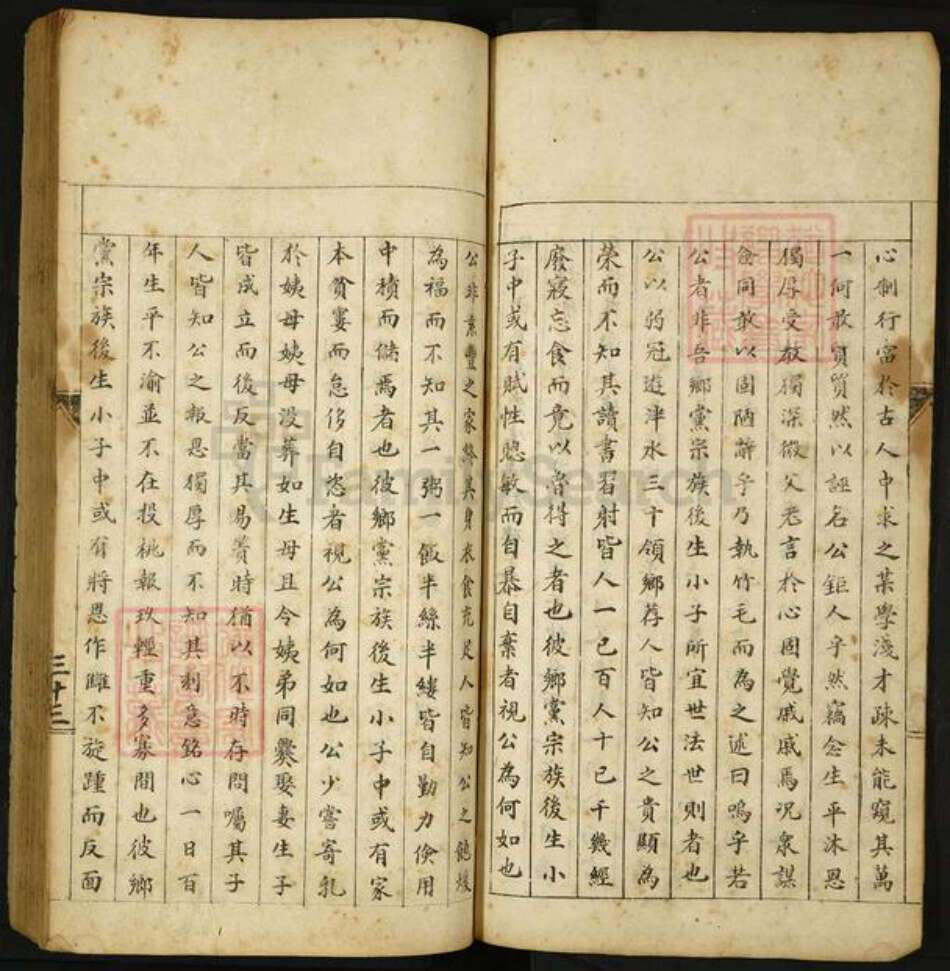 心制行富於古人中求之某學淺才疎未能窺其萬
一何敢貿貿然以誣名公鉅人乎然竊念生平沐恩
獨厚受教獨深微父老言於心固覺戚戚焉况衆謀
僉同敢以固陋辭乎乃執竹毛而為之述曰嗚乎若
公者非吾鄉黨宗族後生小子所宜世法世則者也
公以弱冠遊泮水三十領鄉荐人皆知公之貴顯為
荣而不知其讀書習射皆人一己百人十己千幾經
廢寢忘食而竟以昝得之者也彼鄉黨宗族後生小
子中或有賦性聰敏而自暴自棄者視公為何如也
公非素豐之家終其身衣食充足人皆知公之飽煖
為福而不知其一粥一飯半絲半縷皆自勤力儉用
中積而儲焉者也彼鄉黨宗族後生小子中或有家
本貧窶而怠侈自恣者視公為何如也公少嘗寄乳
於姨母姨母没葬如生母且令姨弟同爨娶妻生子
皆成立而後反當其易簀時猶以不時存問囑其子
人皆知公之報恩獨厚而不知其刻意銘心一日百
年生平不渝並不在投桃報玖輕重多寡間也彼鄉
黨宗族後生小子中或有將恩作雠不旋踵而反面
三十三